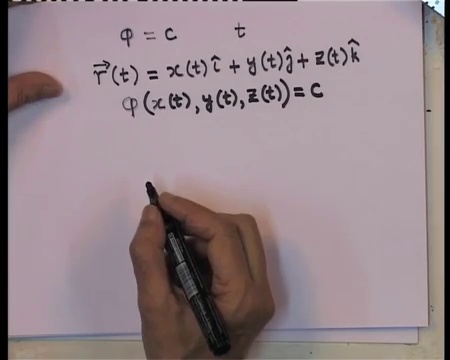 φ = c t
r⃗(t) = x(t) î + y(t) ĵ + z(t) k̂
φ(x(t), y(t), z(t)) = c